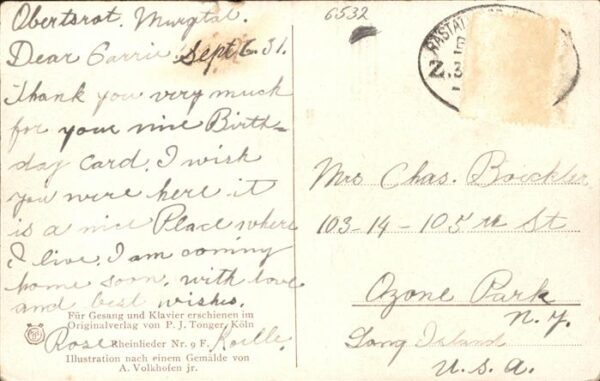 Obertsrot. Murgtal.
Dear Carrie, Sept 6. 31.
Thank you very much
for your nice Birth-
day Card. I wish
you were here it
is a nice Place where
I live. I am coming
home soon. with love
and best wishes.
Rose
Für Gesang und Klavier erschienen im
Originalverlag von P. J. Tonger, Köln
Rheinlieder Nr. 9 F.
Illustration nach einem Gemälde von
A. Volkhofen jr.
6532
RASTAT
Mrs Chas. Boickler
103-14-105 th St
Ozone Park
N. Y.
Long Island
U. S. A.